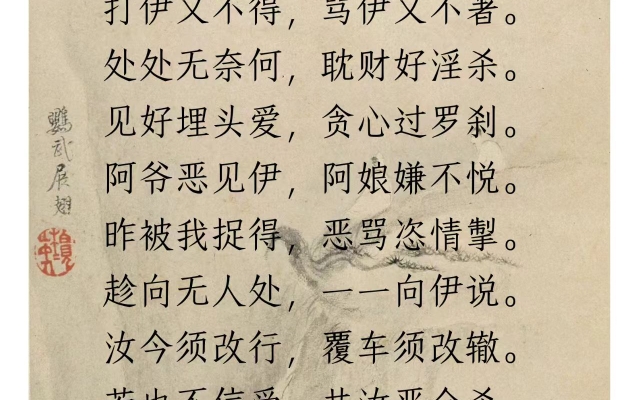 打伊又不得，骂伊又不著。
处处无奈何，耽财好淫杀。
见好埋头爱，贪心过罗刹。
阿爷恶见伊，阿娘嫌不悦。
昨被我捉得，恶骂恣情掣。
趁向无人处，一一向伊说。
汝今须改行，覆车须改辙。
若也不信受，共汝恶合杀
鸚武展翅